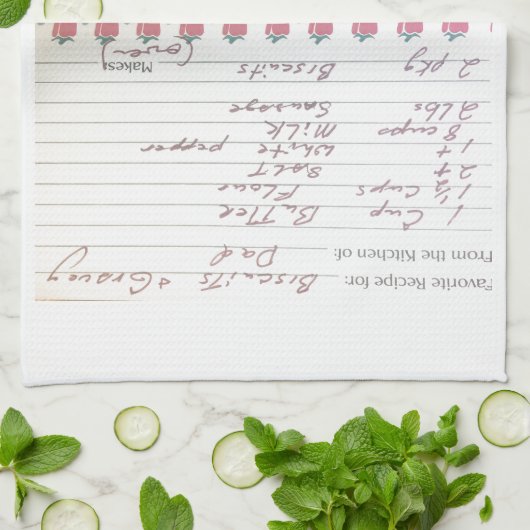 Favorite Recipe for: Biscuits & Gravy
From the Kitchen of: Dad
1 Cup Butter
1 1/2 Cups Flour
2 t Salt
1 t White pepper
8 cups Milk
2 Lbs Sausage
2 pkg Biscuits Makes:
(over)